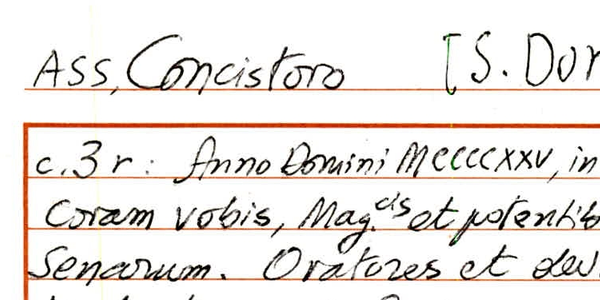 ASS, Concistoro [S. Dor
c.3r: Anno Domini MCCCCXXV, in
Coram vobis, Mag.cis et potentib
Senarum. Oratores et dev.